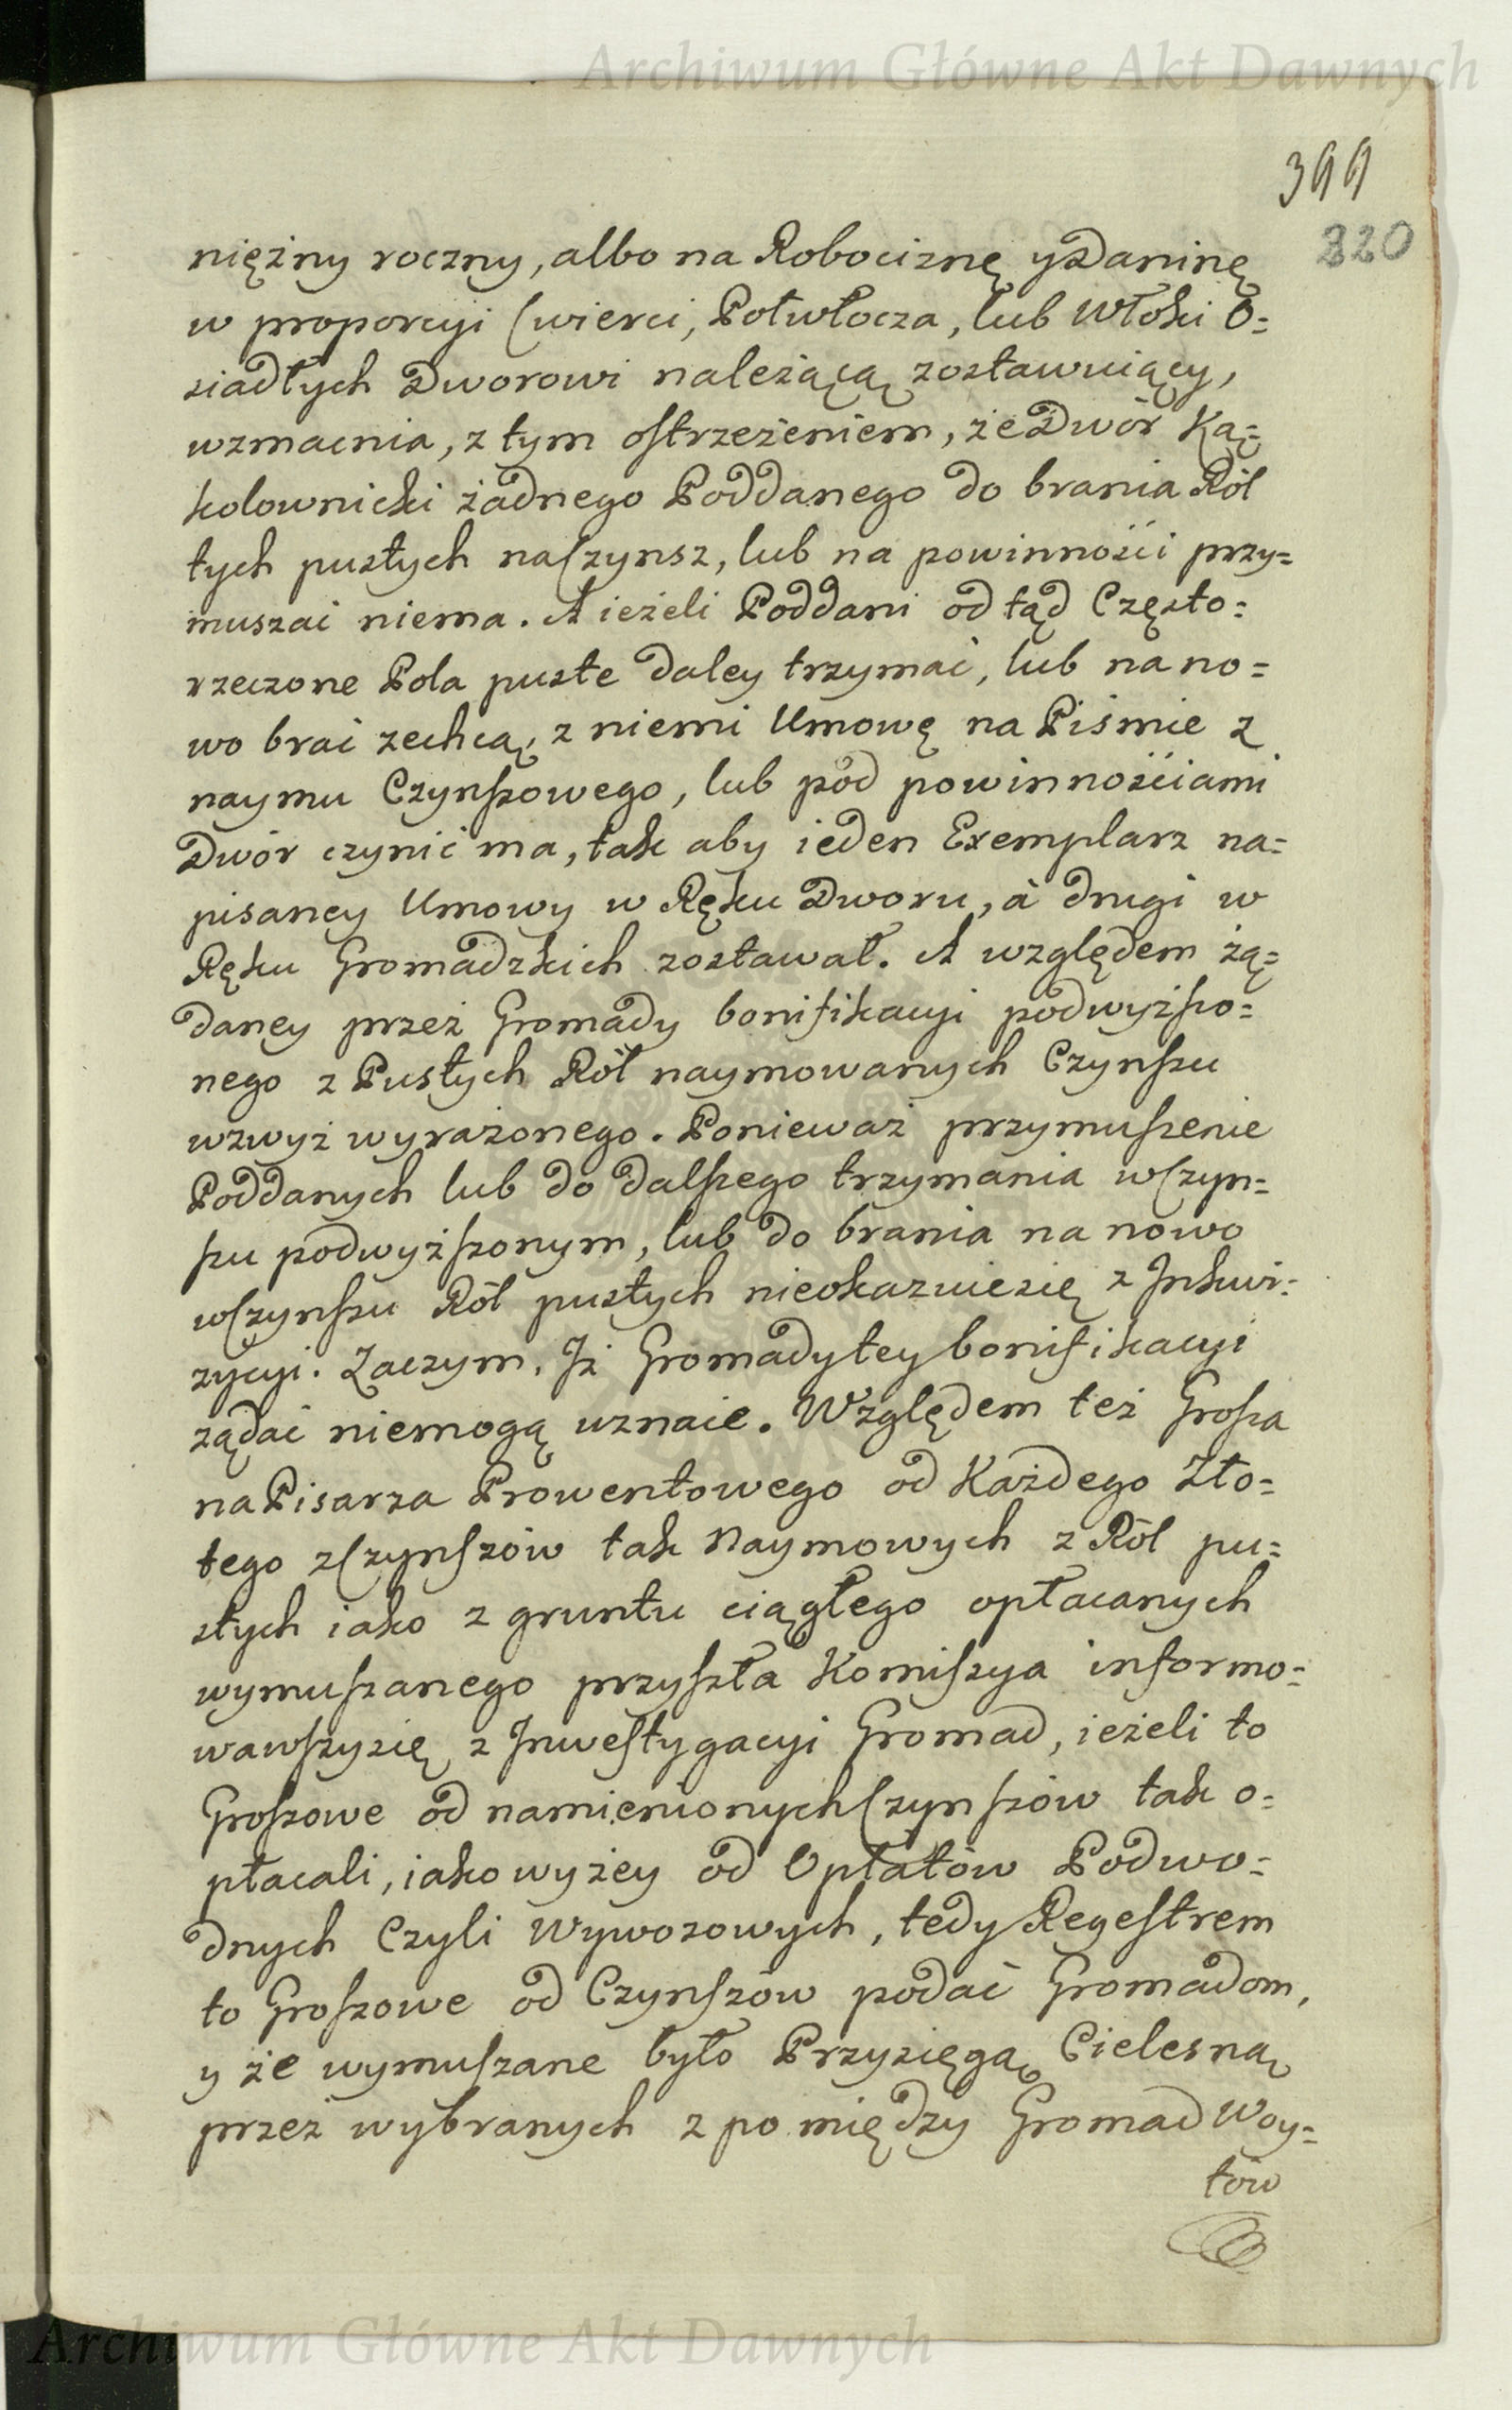 Archiwum Główne Akt Dawnych
399
220
niężny roczny, albo na Robociznę y Daninę
w proporcyi Cwierci, Połwłocza, lub Włoki O=
siadłych Dworowi należącą zostawuiący,
wzmacnia, z tym ostrzeżeniem, że Dwór Ką=
kolownicki żadnego Poddanego do brania Ról
tych pustych na Czynsz, lub na powinności przy=
muszać niema. A ieżeli Poddani od tąd Często=
rzeczone Pola puste daley trzymać, lub na no=
wo brać zechcą, z niemi Umowę na Piśmie z
naymu Czynszowego, lub pod powinnościami
Dwór czynić ma, tak aby ieden Exemplarz na=
pisaney Umowy w Ręku Dworu, á drugi w
Ręku Gromadzkich zostawał. A względem żą=
daney przez Gromady bonifikacyi podwyższo=
nego z Pustych Ról naymowanych Czynszu
wzwyż wyrażonego. Ponieważ przymuszenie
Poddanych lub do dalszego trzymania w Czyn=
szu podwyższonym, lub do brania na nowo
w Czynszu Ról pustych nieokazuie się z Inkwi=
zycyi. Zaczym, Iż Gromady tey bonifikacyi
żądać niemogą uznaie. Względem też Grosza
na Pisarza Prowentowego od Każdego Zło=
tego z Czynszów tak Naymowych z Ról pu=
stych iako z gruntu ciągłego opłacanych
wymuszanego przyszła Komiszya informo=
wawszy się z Inwestygacyi Gromad, ieżeli to
Groszowe od namienionych Czynszów tak o=
płacali, iako wyżey od Opłatów Podwo=
dnych Czyli Wywozowych, tedy Regestrem
to Groszowe od Czynszów podać Gromadom,
y że wymuszane było Przysięgą Cielesną
przez wybranych z pomiędzy Gromad Woy=
tów
Archiwum Główne Akt Dawnych